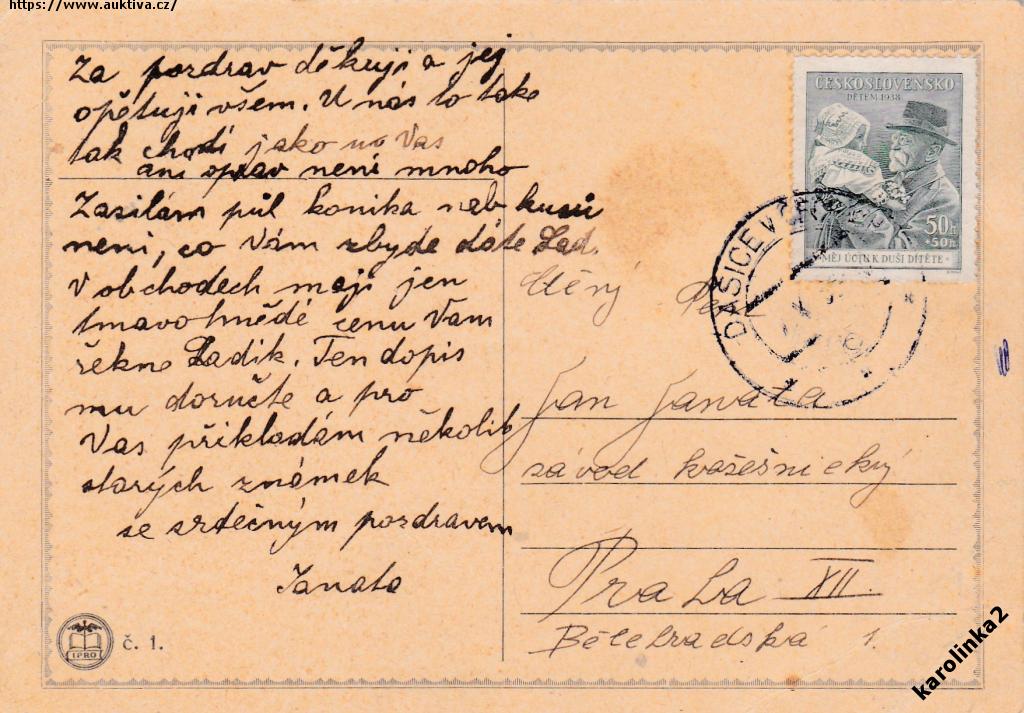 https://www.auktiva.cz/
Za pozdrav děkuji a jej
opětuji všem. U nás to take
tak chodí jako u Vas
ani oprav není mnoho
Zasilám půl konika neb kusů
není, co Vám zbyde dáte Lad.
V obchodech mají jen
tmavohnědé cenu Vam
řekne Ladik. Ten dopis
mu doručte a pro
Vas přikladám několik
starých známek
se srdečným pozdravem
Janata
IPRO
č. 1.
ČESKOSLOVENSKO
DĚTEM 1938
50h
+50h
MĚJ ÚCTU K DUŠI DÍTĚTE
DAŠICE V ČECHÁCH
Ctěný Pan
Jan Janata
závod kožešnický
Praha XII.
Bělehradská 1.
karolinka2